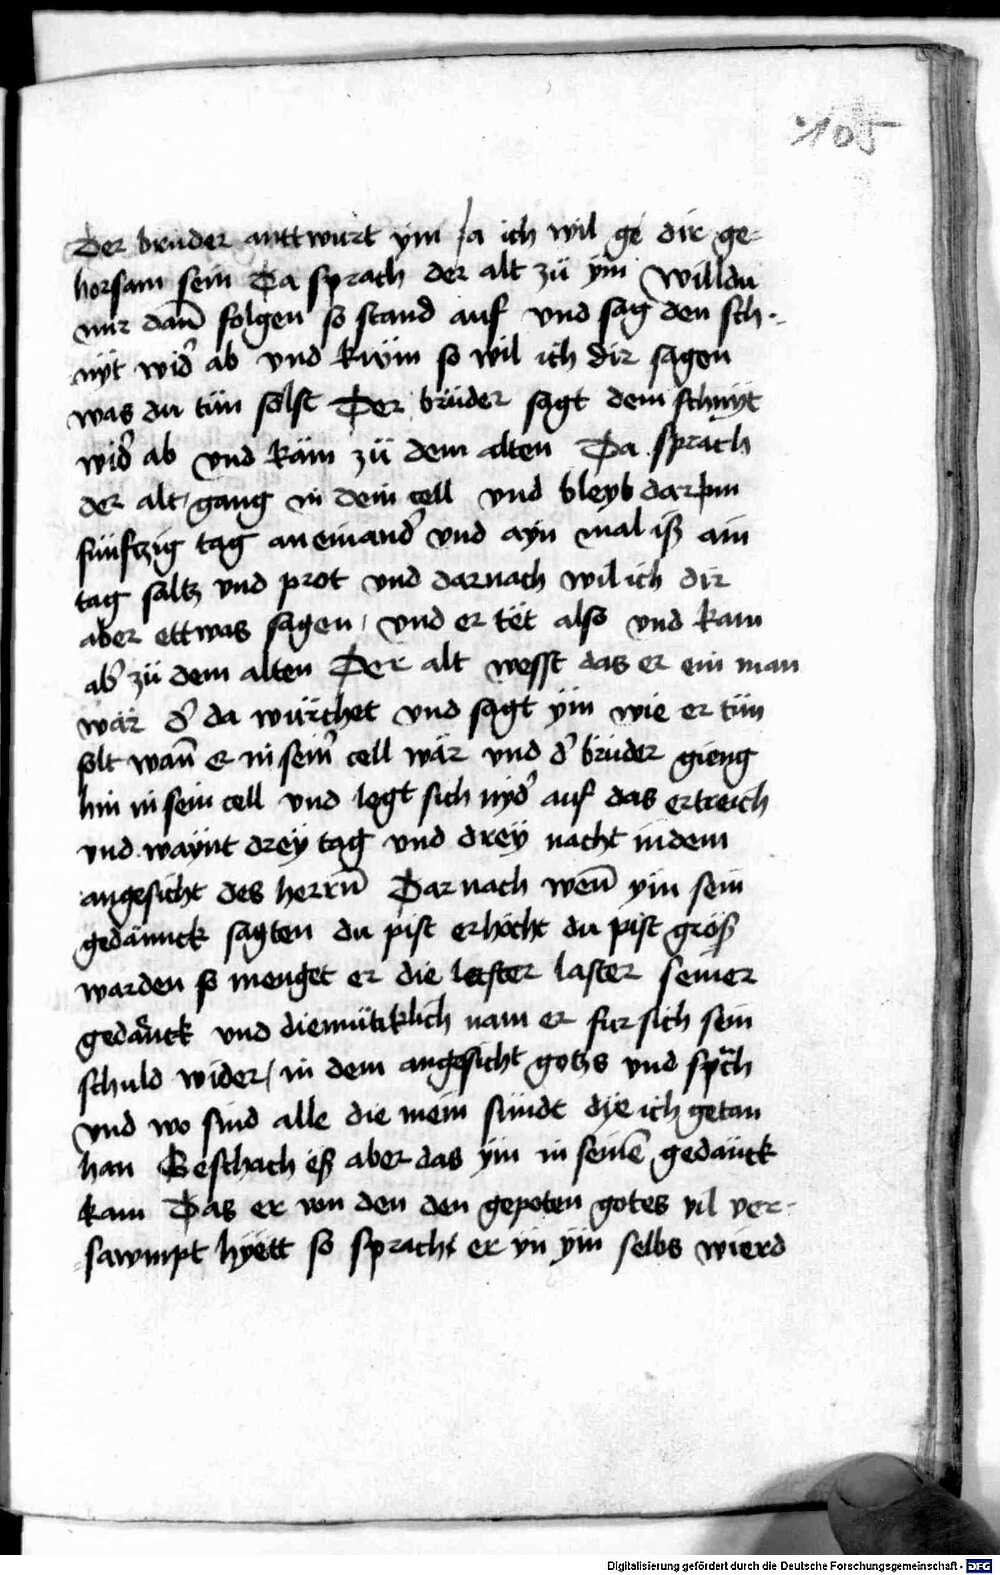 105
Der brüder anttwürt ym Ja ich wil ge dir ge-
horsam sein Da sprach der alt zü ym Willdu
mir dan̄ folgen so stand auf vnd sag den sch-
nÿt wid̕ ab vnd küm so wil ich dir sagen
was du tün solst Der brüder sagt dem schnÿt
wid̕ ab vnd käm zü dem alten Da sprach
der alt / gang in dein cell vnd bleyb darinn
fünftzig tag aneinand̕ vnd ayn mal iß ain
tag saltz vnd prot vnd darnach wil ich dir
aber ettwas sagen / vnd er tët also vnd kam
ab̕ zü dem alten Der alt wesst das er ein man
wär d̕ da würchet vnd sagt ym wie er tün
solt wan̄ er in sein̕ cell wär vnd d̕ brüder gieng
hin in sein cell vnd legt sich nÿd̕ auf das ertreich
vnd waynt drey tag vnd drey nacht in dem
angesicht des herrn̄ Dar nach wen̄ ym sein
gedännck sagten du pist erhöcht du pist gröss
warden so menget er die laster laster seiner
gedänck vnd diemütiklich nam er fur sich sein
schuld wider / in dem angesicht gotzs vnd sprach
vnd wo sind alle die mein sündt dye ich getan
han Beschach eß aber das ym in seinē gedänck
kam Das er von den den gepoten gotes vil ver-
sawmpt hyëtt so sprach er yn ym selbs wierd
Digitalisierung gefördert durch die Deutsche Forschungsgemeinschaft - DFG